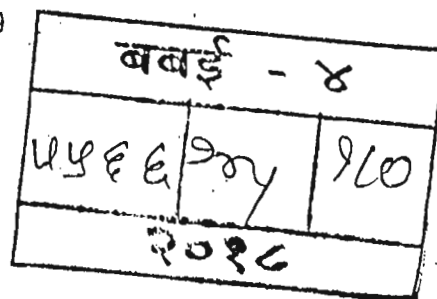 बबई - ४
५५६६ १८०
२०१८